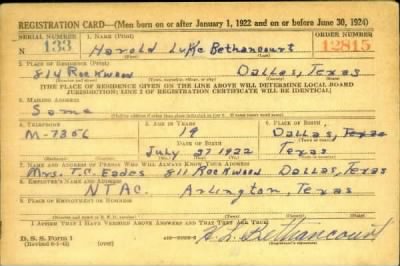 REGISTRATION CARD—(Men born on or after January 1, 1922 and on or before June 30, 1924)
SERIAL NUMBER 1. NAME (Print) ORDER NUMBER
N 133 Harold Luke Bethancourt 12815
(First) (Middle) (Last)
2. PLACE OF RESIDENCE (Print)
814 Rockwood Dallas, Texas
(Number and street) (Town, township, village, or city) (County) (State)
[THE PLACE OF RESIDENCE GIVEN ON THE LINE ABOVE WILL DETERMINE LOCAL BOARD
JURISDICTION; LINE 2 OF REGISTRATION CERTIFICATE WILL BE IDENTICAL]
3. MAILING ADDRESS
Same
4. TELEPHONE 5. AGE IN YEARS 6. PLACE OF BIRTH
M-7356 19 Dallas, Texas
DATE OF BIRTH
July 27 1922 Texas
7. NAME AND ADDRESS OF PERSON WHO WILL ALWAYS KNOW YOUR ADDRESS
Mrs. T.C. Eades 811 Rockwood Dallas, Texas
8. EMPLOYER'S NAME AND ADDRESS
NTAC. Arlington, Texas
9. PLACE OF EMPLOYMENT OR BUSINESS
I AFFIRM THAT I HAVE VERIFIED ABOVE ANSWERS AND THAT THEY ARE TRUE.
D. S. S. Form 1 H. L. Bethancourt